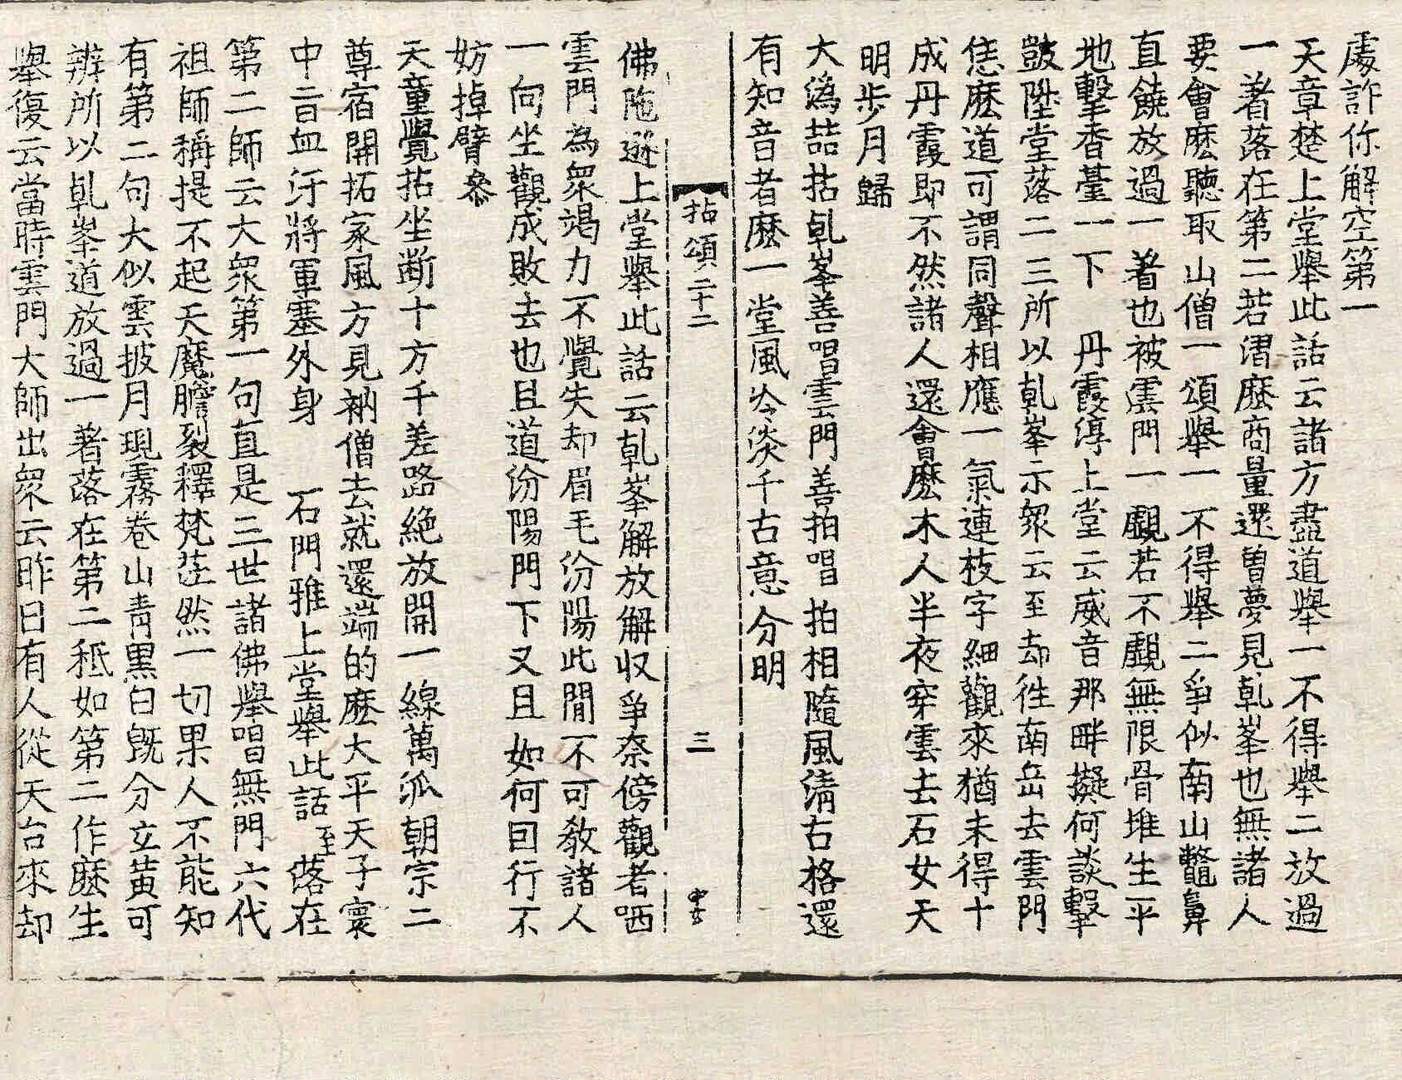 處詐你解空第一
天章楚上堂舉此話云諸方盡道舉一不得舉二放過
一著落在第二若謂麽商量還曽夢見乹峯也無諸人
要會麽聽取山僧一頌舉一不得舉二爭似南山鼈鼻
直饒放過一著也被雲門一覰若不覰無限骨堆生平
地擊香臺一下 丹霞淳上堂云威音那畔擬何談擊
鼓陞堂落二三所以乹峯示衆云至却徃南岳去雲門
恁麽道可謂同聲相應一氣連枝字細觀來猶未得十
成丹霞即不然諸人還會麽木人半夜穿雲去石女天
明歩月歸
大潙喆拈乹峯善唱雲門善拍唱拍相隨風清古格還
有知音者麽一堂風冷淡千古意分明
拈頌二十二 三
佛陁遜上堂舉此話云乹峯解放解収爭奈傍觀者哂
雲門為衆竭力不覺失却眉毛汾陽此間不可教諸人
一向坐觀成敗去也且道汾陽門下又且如何囙行不
妨掉臂叅
天童覺拈坐断十方千差路絶放開一線萬派朝宗二
尊宿開拓家風方見衲僧去就還端的麽大平天子寰
中旨血汙將軍塞外身 石門雅上堂舉此話至落在
第二師云大衆第一句直是三世諸佛舉唱無門六代
祖師稱提不起天魔膽裂釋梵茫然一切果人不能知
有第二句大似雲披月現霧卷山青黒白旣分立黄可
辨所以乹峯道放過一著落在第二秪如第二作麽生
舉復云當時雲門大師出衆云昨日有人從天台來却